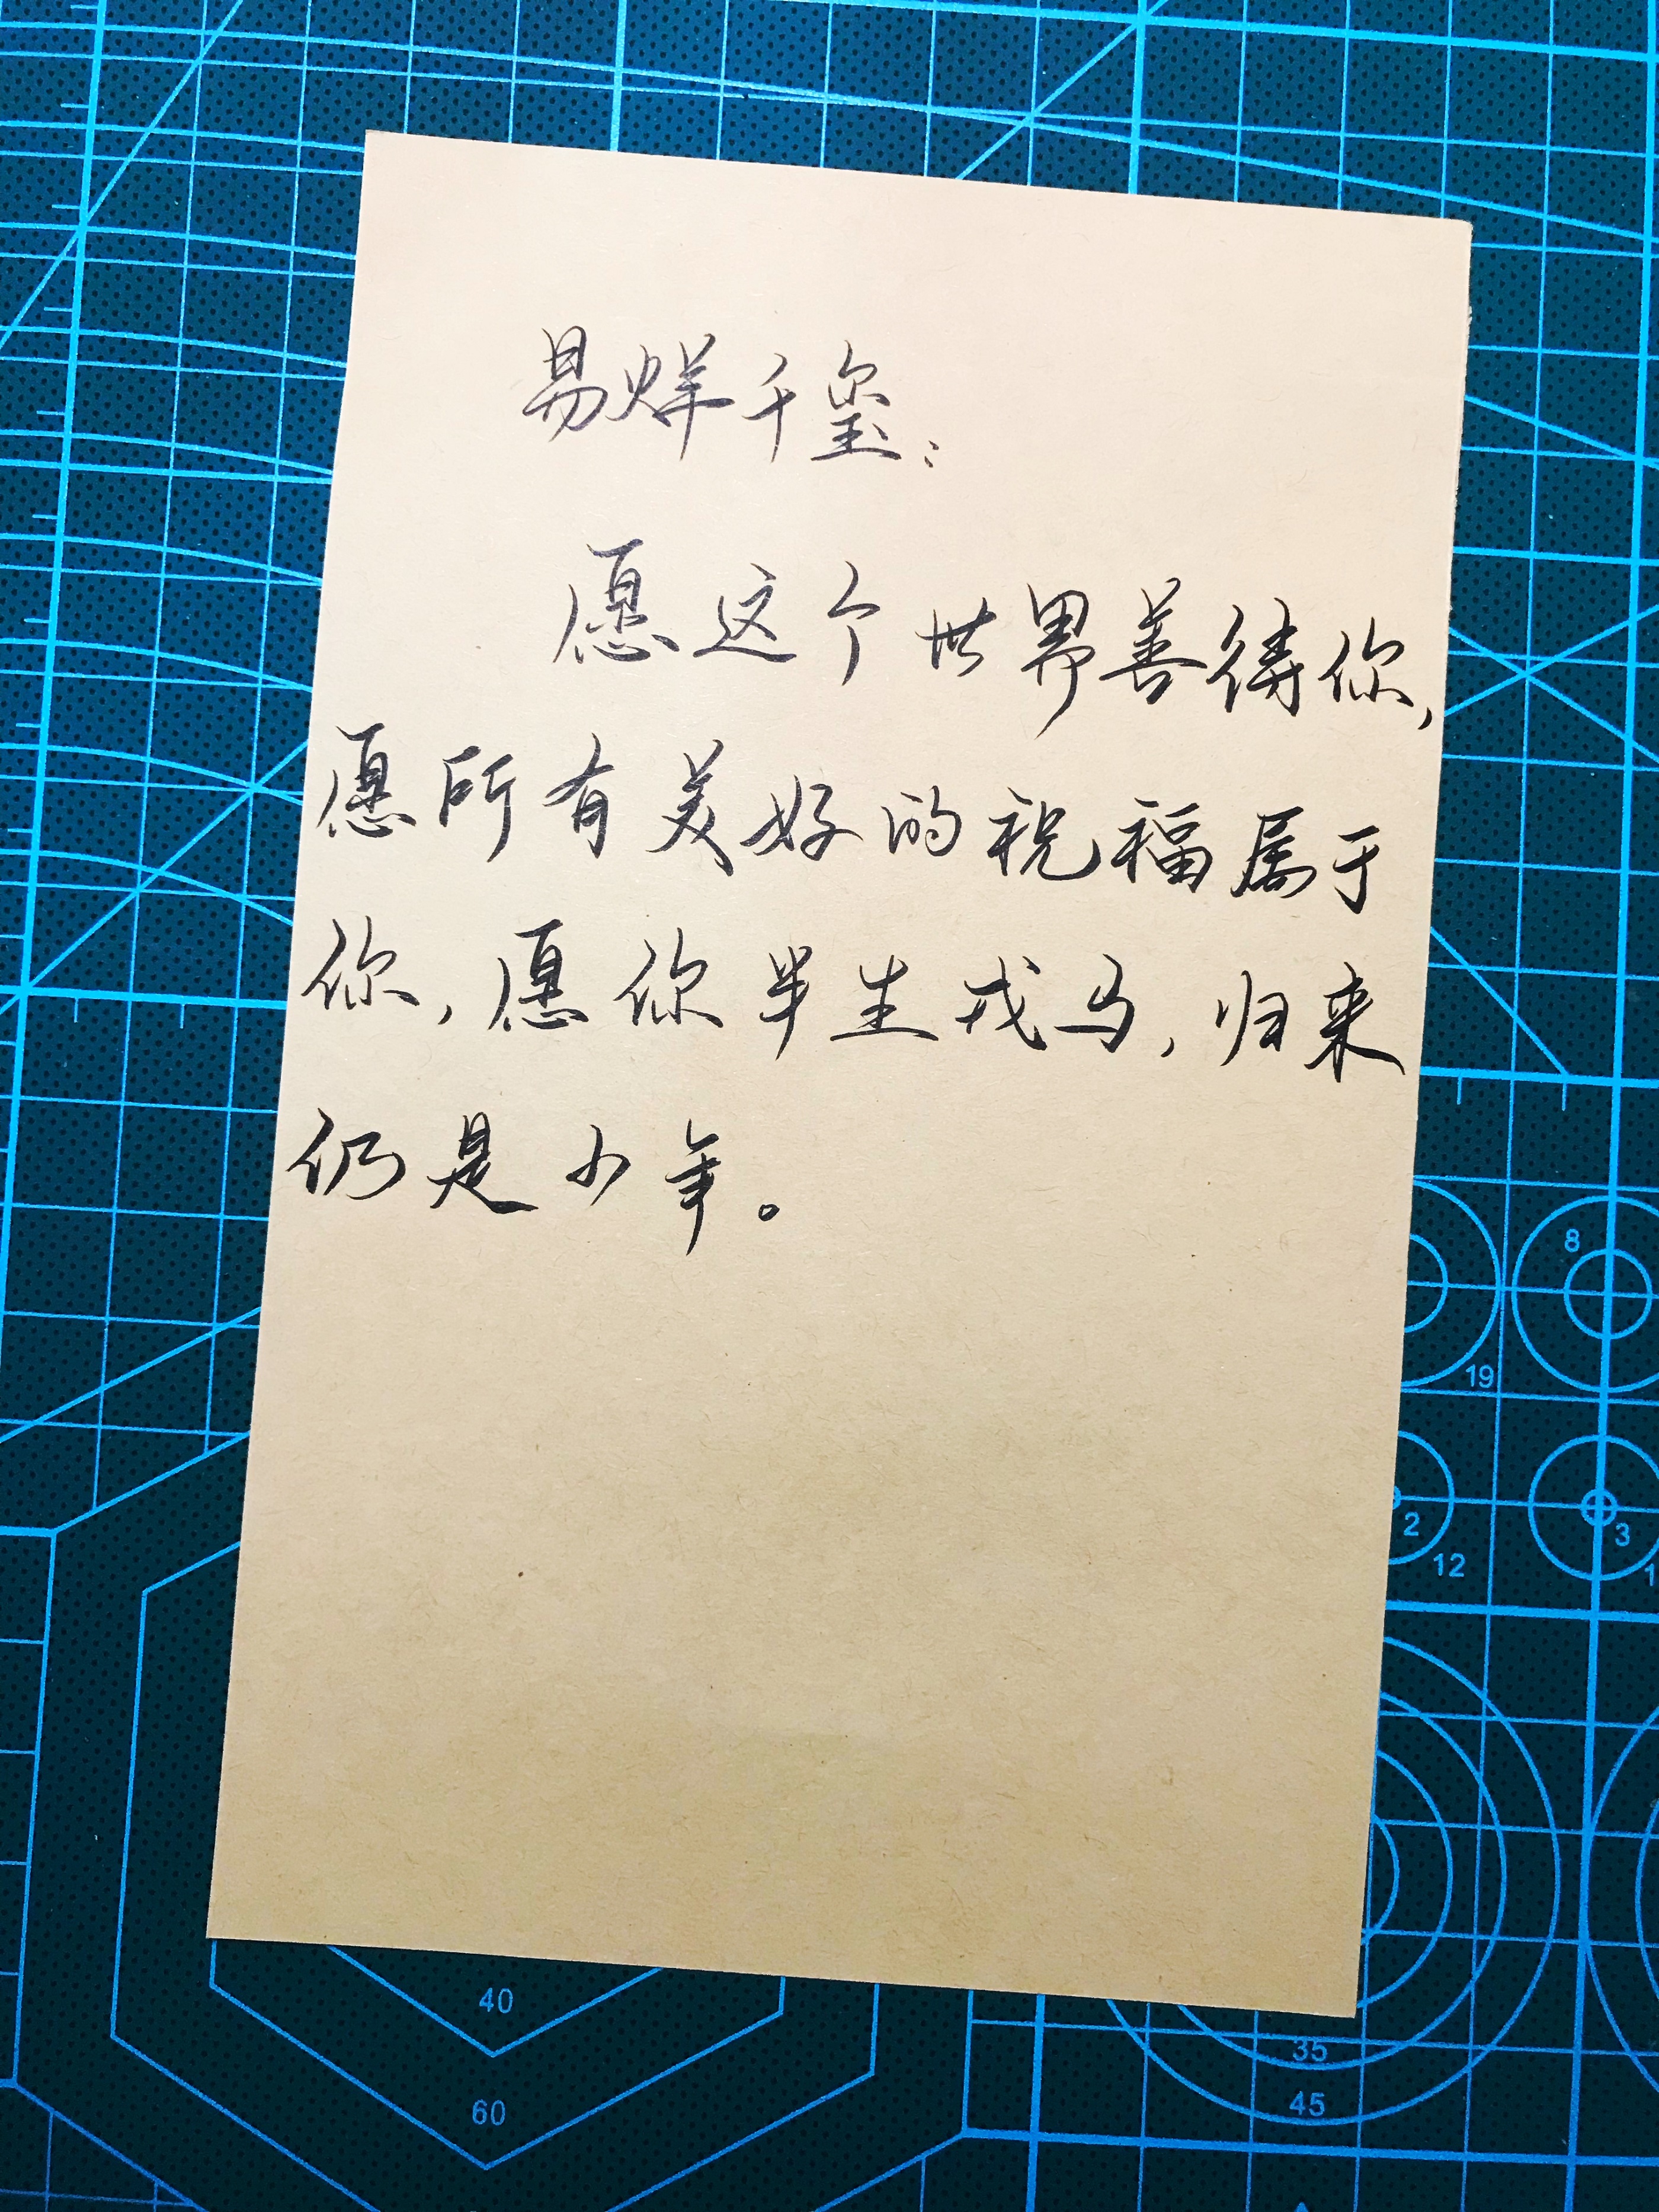 易烊千玺：
愿这个世界善待你，
愿所有美好的祝福属于
你，愿你半生戎马，归来
仍是少年。
8
19
2
12
3
40
60
35
45